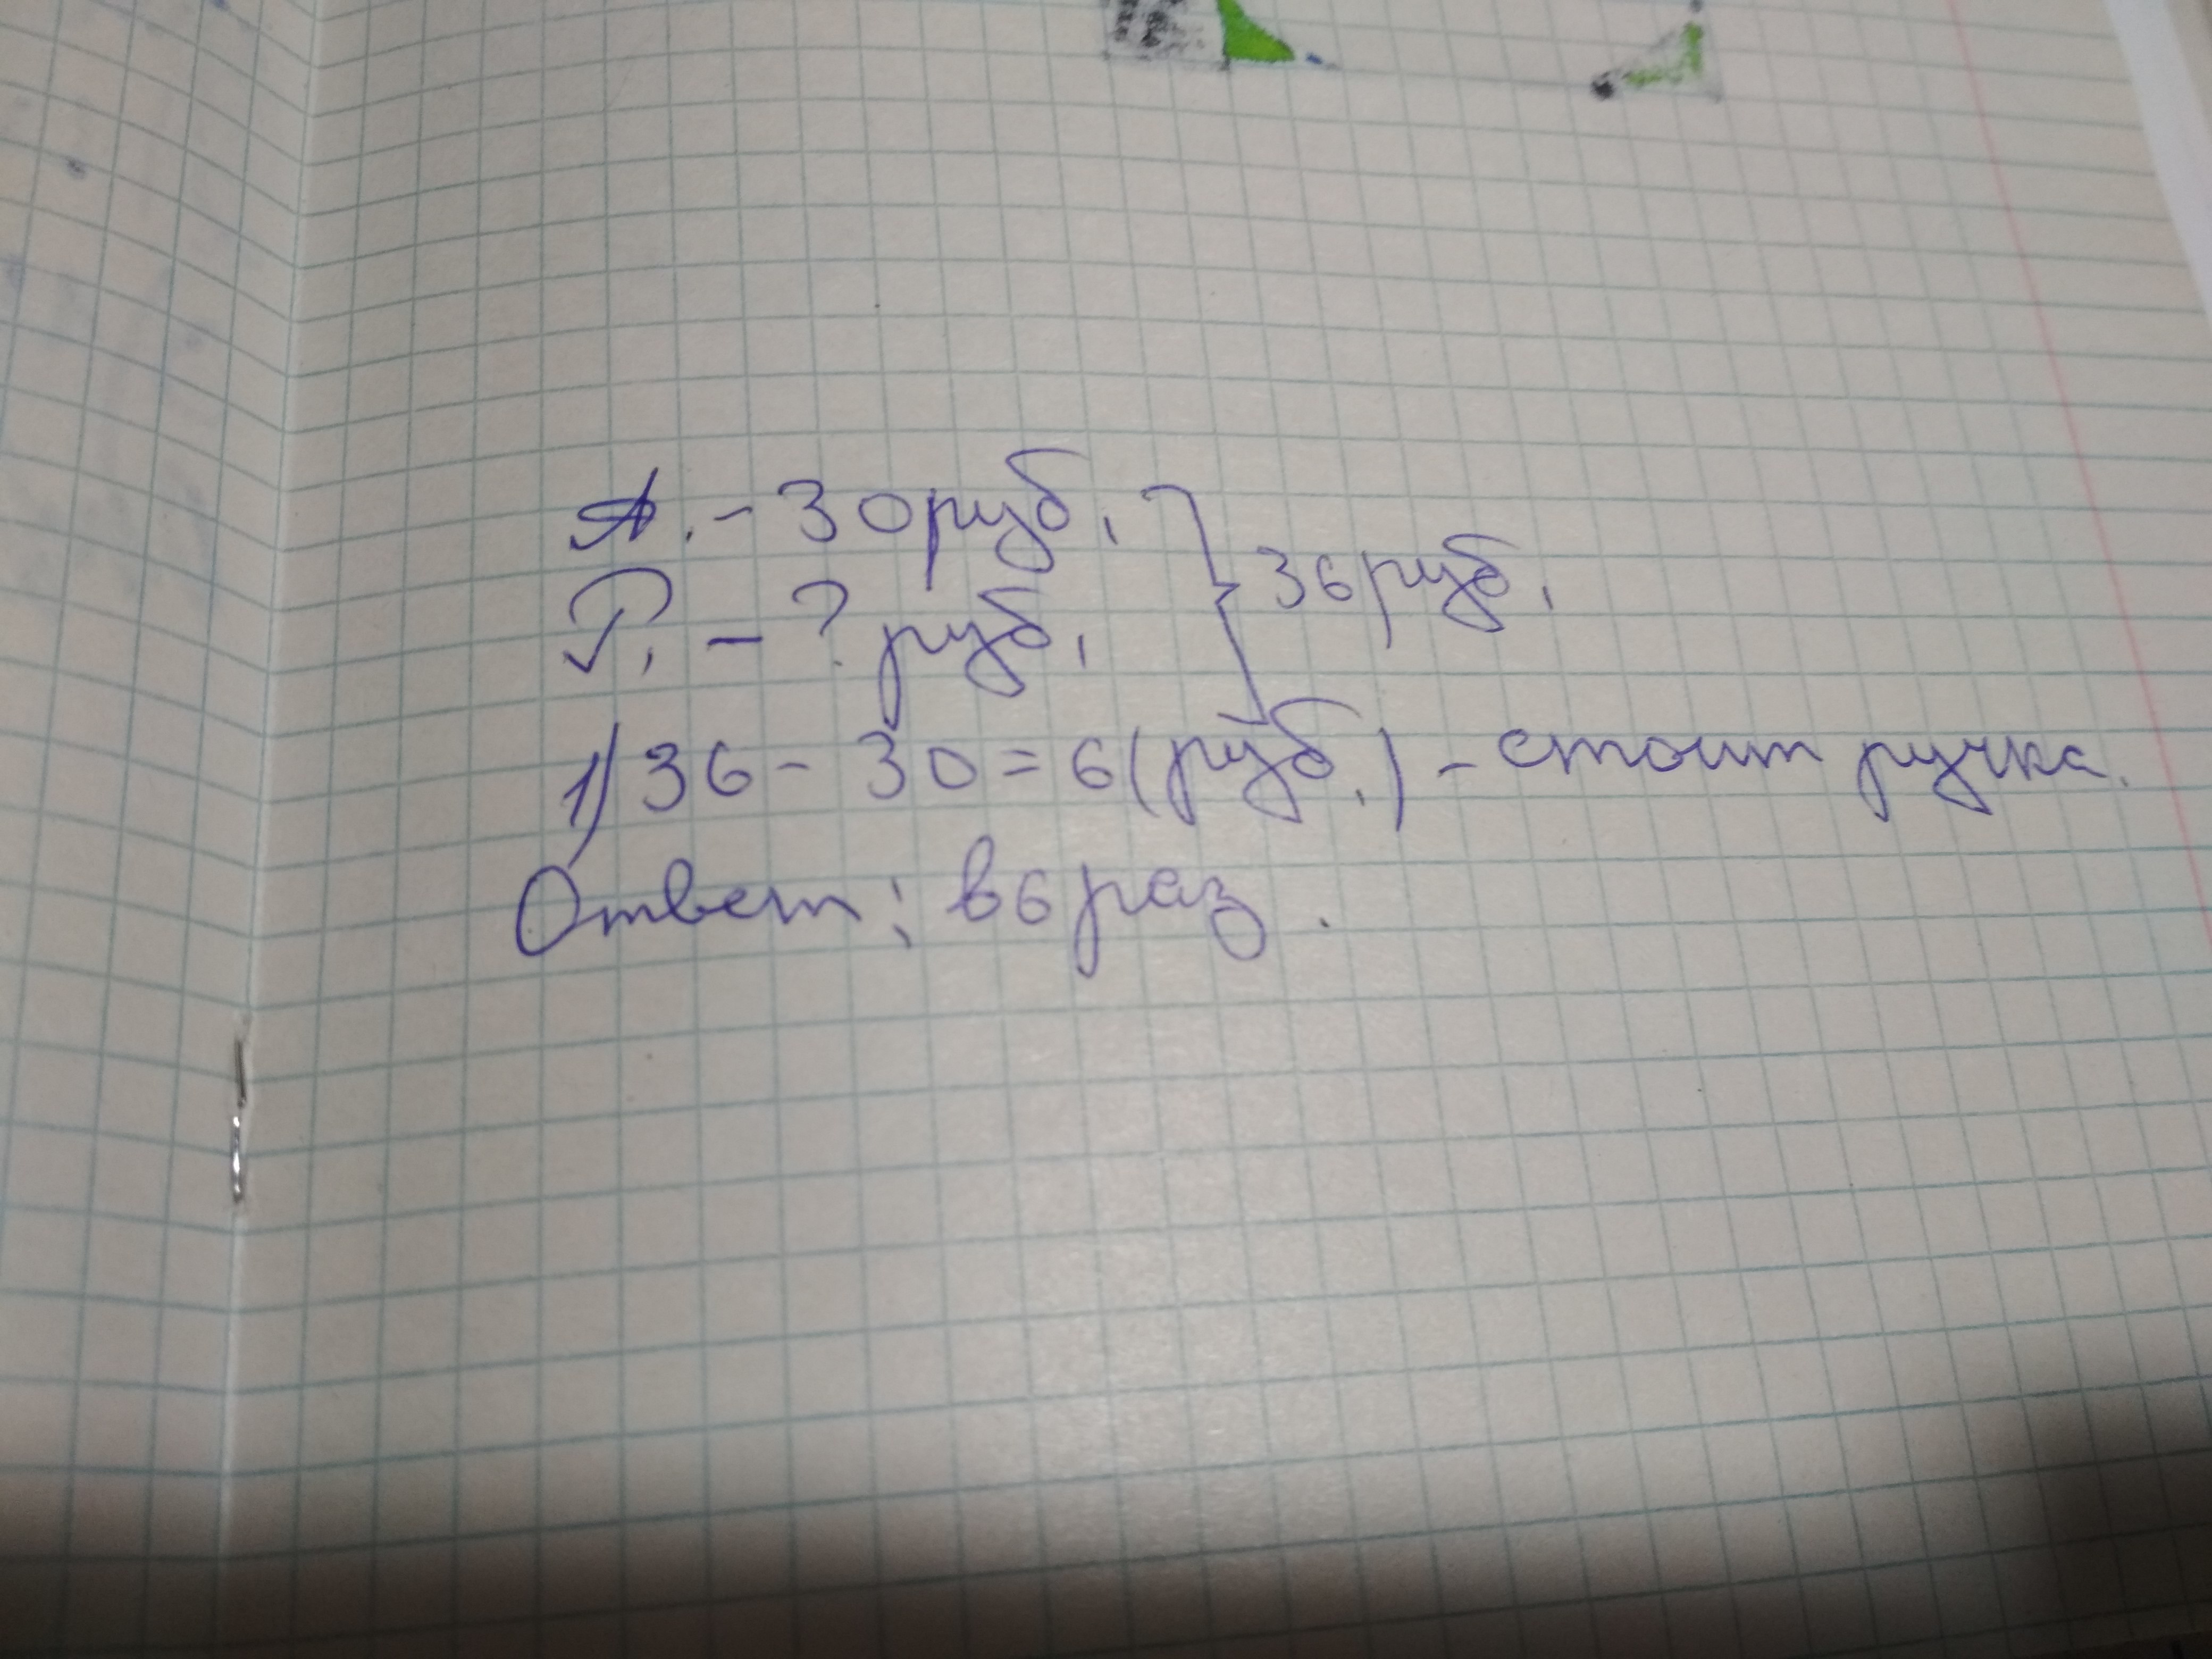 А. - 30 руб.
Р. - ? руб.
36 руб.
1) 36 - 30 = 6 (руб.) - стоит ручка.
Ответ: в 6 раз.